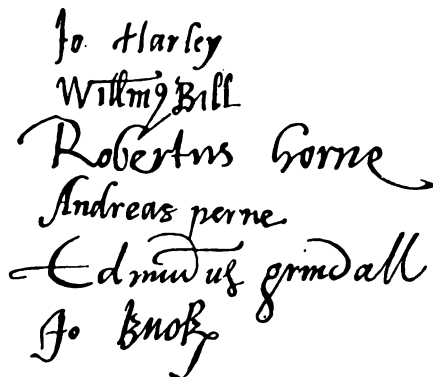 Jo. Harley
Willmꝰ Bill
Robertus horne
Andreas perne
Edmūdus grindall
Jo Knox